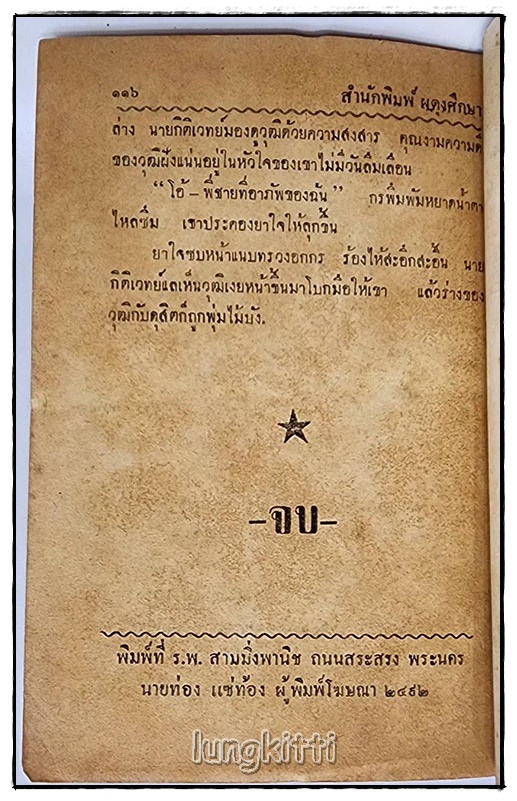 ๑๑๖
สำนักพิมพ์ ผดุงศึกษา
ล่าง นายกิติเวทย์มองดูวุฒิด้วยความสงสาร คุณงามความดี
ของวุฒิฝังแน่นอยู่ในหัวใจของเขาไม่มีวันลืมเลือน
“ โอ้ – พี่ชายที่อาภัพของฉัน ” กรพิมพ์มหยาดน้ำตา
ไหลซึม เขาประคองยาใจให้ลุกขึ้น
ยาใจซบหน้าแนบทรวงอกกร ร้องไห้สะอึกสะอื้น นาย
กิติเวทย์แลเห็นวุฒิเงยหน้าขึ้นมาโบกมือให้เขา แล้วร่างของ
วุฒิกับดุสิตก็ถูกพุ่มไม้บัง.
–จบ–
พิมพ์ที่ ร.พ. สามมิ่งพานิช ถนนสระสรง พระนคร
นายท่อง แซ่ท้อง ผู้พิมพ์โฆษณา ๒๔๙๒
lungkitti